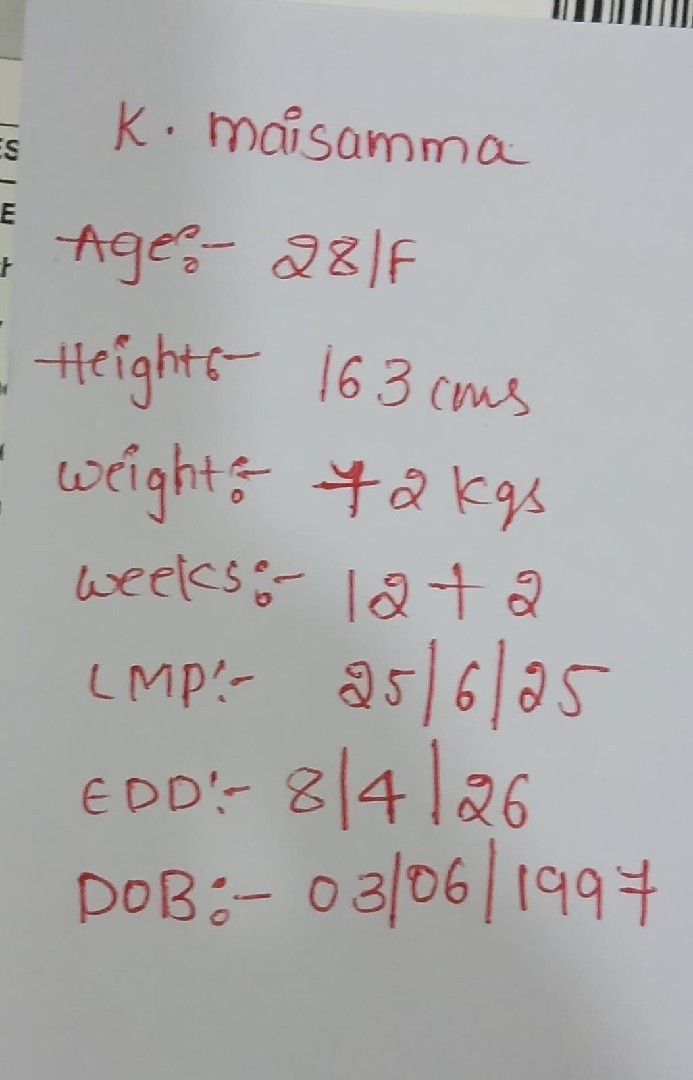 K. maisamma
Age:- 28/F
Height:- 163 cms
weight:- 72 kgs
weeks:- 12 + 2
LMP:- 25/6/25
EDD:- 8/4/26
DOB:- 03/06/1997
ES
E